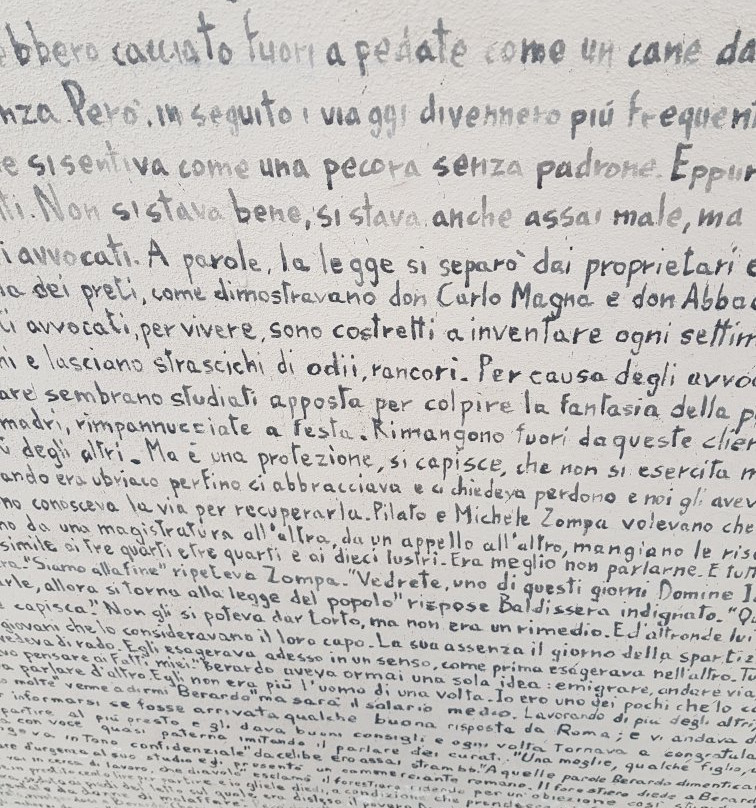 ebbero cacciato fuori a pedate come un cane da
nza. Però, in seguito i viaggi divennero più frequen
e si sentiva come una pecora senza padrone. Eppur
ti. Non si stava bene, si stava anche assai male, ma
i avvocati. A parole, la legge si separò dai proprietari e
la dei preti, come dimostravano don Carlo Magna e don Abbac
li avvocati, per vivere, sono costretti a inventare ogni settim
ni e lasciano strascichi di odii, rancori. Per causa degli avvoc
are sembrano studiati apposta per colpire la fantasia della p
madri, rimpannucciate a festa. Rimangono fuori da queste clien
i degli altri. Ma è una protezione, si capisce, che non si esercita n
ando era ubriaco perfino ci abbracciava e ci chiedeva perdono e noi gli avev
no conosceva la via per recuperarla. Pilato e Michele Zompa volevano che
no da una magistratura all'altra, da un appello all'altro, mangiano le ris
simile ai tre quarti e tre quarti e ai dieci lustri. Era meglio non parlarne. E tutt
ra. "Siamo alla fine" ripeteva Zompa. "Vedrete, uno di questi giorni Domine I
arle, allora si torna alla legge del popolo" rispose Baldissera indignato. "Qu
e capisca." Non gli si poteva dar torto, ma non era un rimedio. Ed'altronde lui
giovani che lo consideravano il loro capo. La sua assenza il giorno della spartiz
vedeva di rado. Egli esagerava adesso in un senso, come prima esagerava nell'altro. Tu
vo pensare ai fatti miei." Berardo aveva ormai una sola idea: emigrare, andare via
a parlare d'altro. Egli non era più l'uomo di una volta. Io ero uno dei pochi che lo c
o molte" venne a dirmi Berardo "ma sarà il salario medio. Lavorando di più degli altri,
informarsi se fosse arrivata qualche buona risposta da Roma; e vi andava d
partire al più presto e gli dava buoni consigli e ogni volta tornava a congratula
a con voce quasi paterna, imitando il parlare dei curati. "Una moglie, qualche figlio,
igeva in tono confidenziale" da celibe ero assai strambo." A quelle parole Berardo dimentica
are d'urgenza al suo studio e gli presentò un commerciante romano. Il forestiero diede a Bera
vai in cerca di lavoro, che diavolo" esclamò il forestiero ridendo